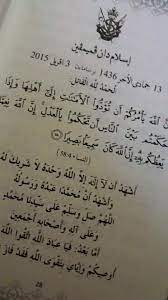 إسلام دان ڤميمڤين
13 جمادى الأخير 1436 برسامأن 3 اڤريل 2015
الحمد لله القائل
إِنَّ اللَّهَ يَأْمُرُكُمْ أَن تُؤَدُّوا الْأَمَانَاتِ إِلَىٰ أَهْلِهَا وَإِذَا
حَكَمْتُم بَيْنَ النَّاسِ أَن تَحْكُمُوا بِالْعَدْلِ إِنَّ اللَّهَ نِعِمَّا
يَعِظُكُم بِهِ إِنَّ اللَّهَ كَانَ سَمِيعًا بَصِيرًا
(النساء 4:58)
أَشْهَدُ أَنْ لَا إِلَهَ إِلَّا اللَّهُ وَحْدَهُ لَا شَرِيكَ لَهُ
وَأَشْهَدُ أَنَّ مُحَمَّدًا عَبْدُهُ وَرَسُولُهُ
اللَّهُمَّ صَلِّ وَسَلِّمْ عَلَى سَيِّدِنَا مُحَمَّدٍ
وَعَلَى آلِهِ وَأَصْحَابِهِ أَجْمَعِينَ
أَمَّا بَعْدُ، فَيَا عِبَادَ اللَّهِ اتَّقُوا اللَّهَ
أُوصِيكُمْ وَإِيَّايَ بِتَقْوَى اللَّهِ فَقَدْ فَازَ
28